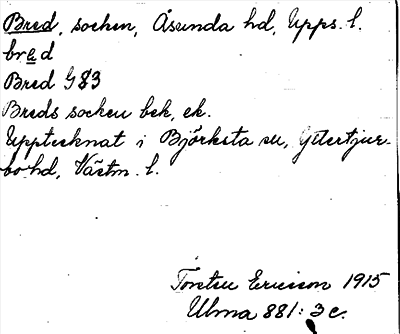 Bred, socken, Åsunda hd, Upps. l.
bred
Bred G 83
Breds socken bek, ek.
Upptecknat i Björksta sn, Yttertjur-
bo hd, Västm. l.
Torsten Ericsson 1915
Ulma 881:3c.